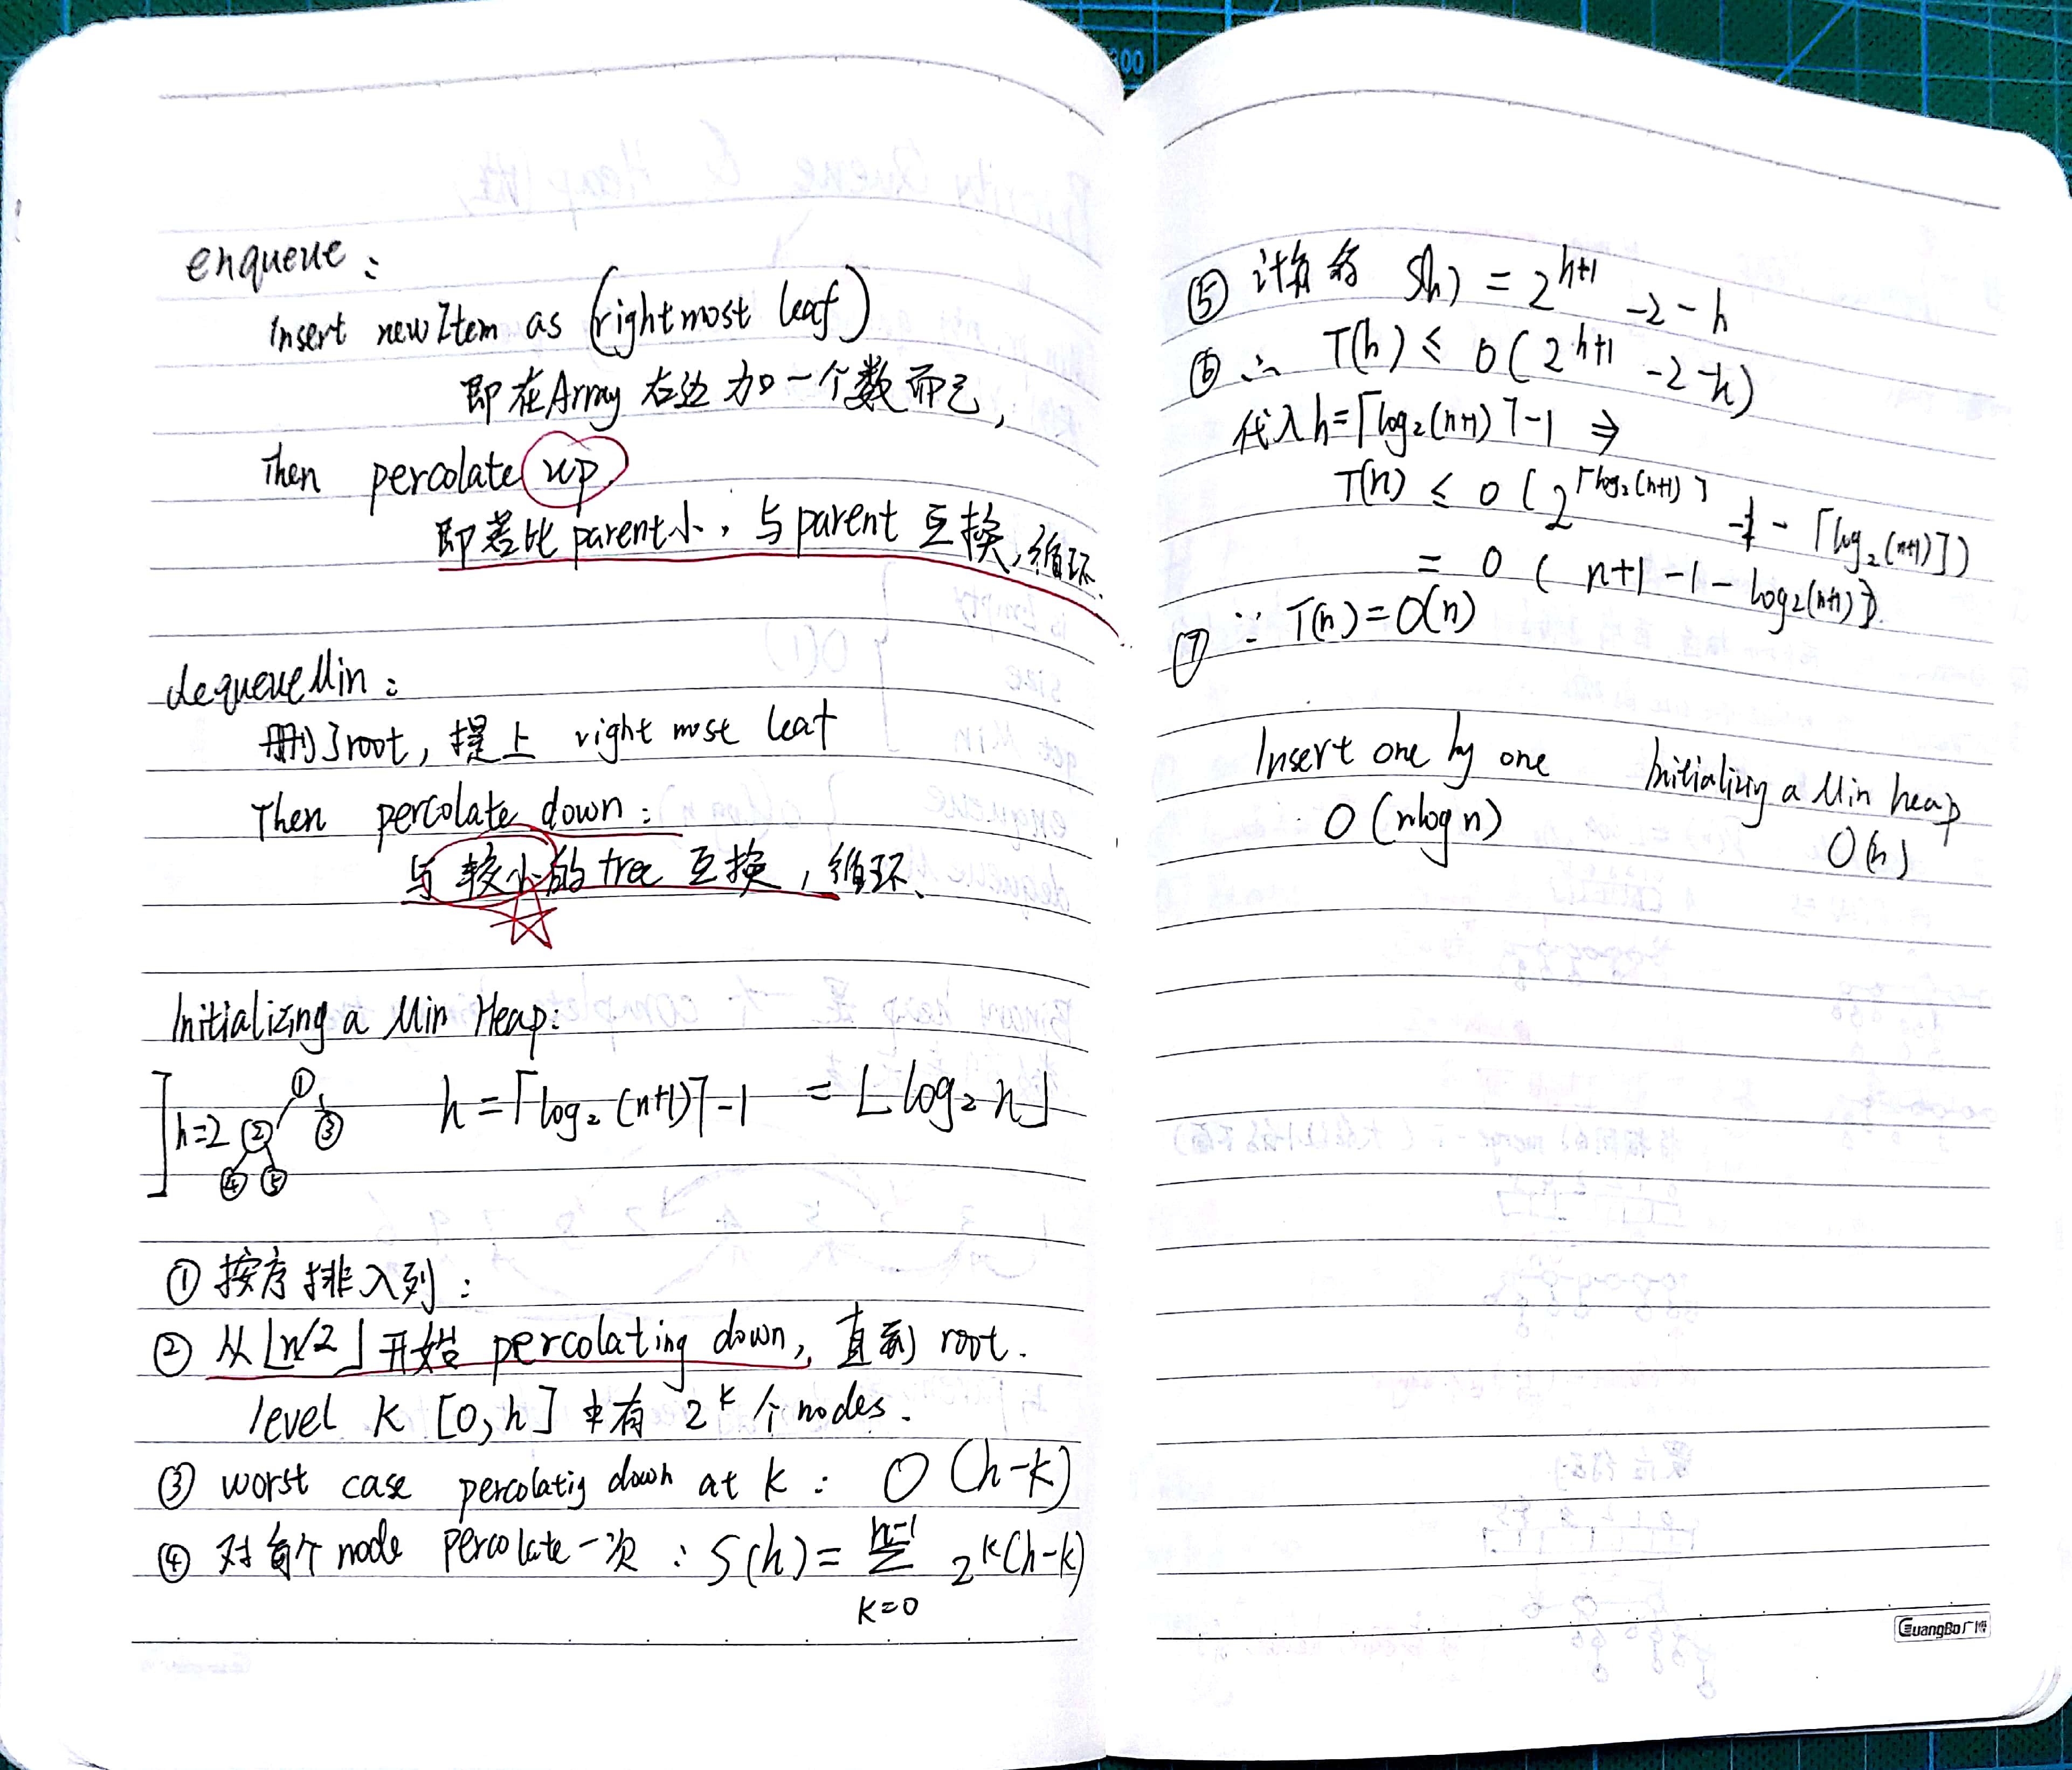 enqueue:
Insert newItem as (rightmost leaf)
即在Array 右边 加一个数而已,
Then percolate up.
即若比parent小, 与parent 互换, 循环.
dequeueMin:
删了root, 提上 right most leaf
Then percolate down:
与较小的tree 互换, 循环、
Initializing a Min Heap:
h=2 ① ② ③ ④ ⑤
h=⌈log₂(n+1)⌉-1 = ⌊log₂ n⌋
① 按序排入列:
② 从⌊n/2⌋开始 percolating down, 直到 root.
level K [0, h] 中有 2^k 个nodes.
③ worst case percolatig down at K: O (h-k)
④ 对每个 node percolate一次: S(h)= Σ_{k=0}^{h-1} 2^k(h-k)
⑤ 计算得 S(h) = 2^{h+1} -2-h
⑥ ∴ T(h) ≤ O(2^{h+1} -2-h)
代入h=⌈log₂(n+1)⌉-1 ⇒
T(n) ≤ O(2^{⌈log₂(n+1)⌉} -1- ⌈log₂(n+1)⌉)
= O(n+1-1-log₂(n+1))
⑦ ∵ T(n)=O(n)
Insert one by one Initializing a Min heap
O(nlog n) O(n)
GuangBo广博